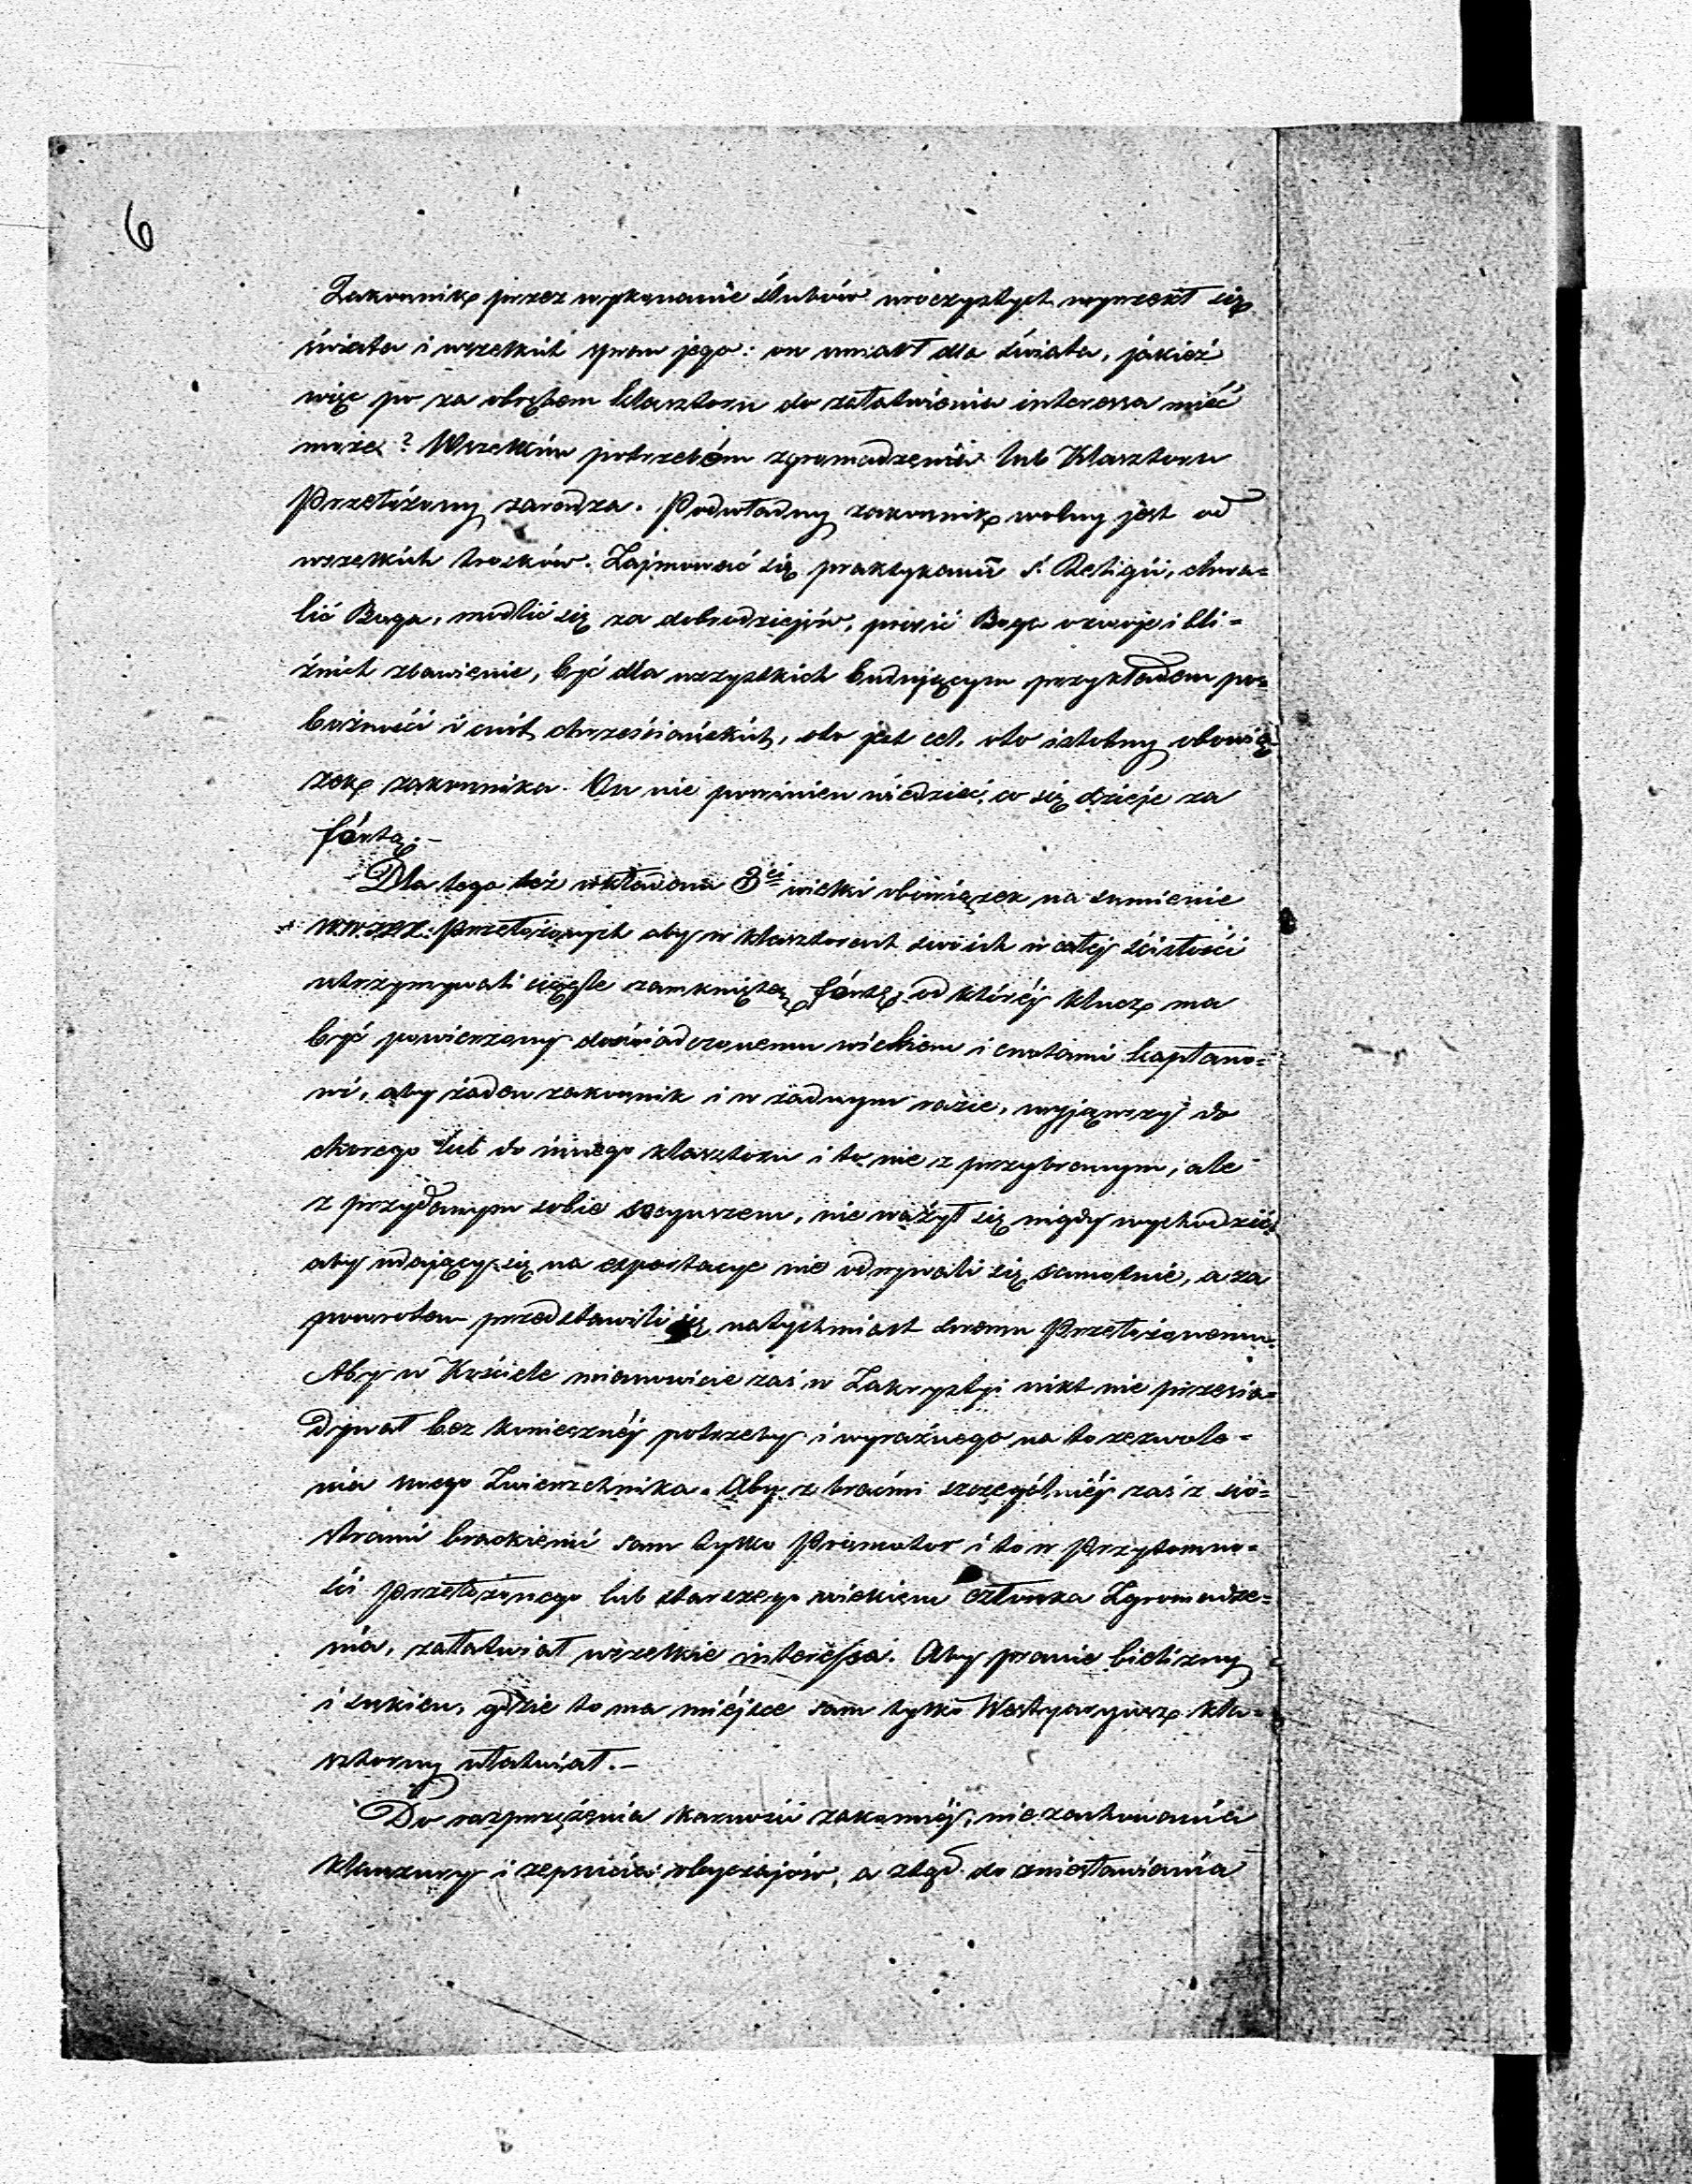 6
Zakonnik przez wykonanie ślubów uroczystych wyrzekł się
świata i wszelkich spraw jego: on umarł dla świata, jakież
więc po za obrębem klasztoru do załatwienia interessa mieć
może? Wszelkim potrzebóm zgromadzenia lub Klasztoru
Przełożony zaradza. Podwładny zakonnik wolny jest od
wszelkich trosków. Zajmować się praktykami ś. Religii, chwa=
lić Boga, modlić się za dobrodziejów, prosić Boga o swoje i bli=
źnich zbawienie, być dla wszystkich budującym przykładem po=
bożności i cnót chrześciańskich, oto jest cel, oto istotny obowią
zek zakonnika. On nie powinien wiedzieć, co się dzieje za
fórtą.–
Dla tego też wkładam 3ci wielki obowiązek na sumienie
W.W. XX. Przełożonych aby w klasztorach swoich w całej ścisłości
utrzymywali ciągle zamkniętą fórtę, od któréj klucz ma
być powierzony doświadczonemu wiekiem i cnotami kapłano=
wi, aby żaden zakonnik i w żadnym razie, wyjąwszy do
chorego lub do innego klasztoru i to nie z przybranym, ale
z przydanym sobie socyuszem, nie ważył się nigdy wychodzić,
aby udający się na exportacye nie odrywali się samotnie, a za
powrotem przedstawili się natychmiast swemu Przełożonemu.
Aby w Kościele mianowicie zaś w Zakrystyi nikt nie przesia=
dywał bez koniecznéj potrzeby i wyraźnego na to zezwole=
nia swego Zwierzchnika. Aby z braćmi szczególniéj zaś z sio=
strami brackiemi sam tylko Promotor i to w Przytomno=
ści Przełożonego lub starszego wiekiem członka Zgromadze=
nia, załatwiał wszelkie interessa. Aby pranie bielizny
i sukien, gdzie to ma miéjsce sam tylko Westyaryusz kla=
sztorny ułatwiał.–
Do rozprzężenia karności zakonnéj, niezachowania
klauzury i zepsucia obyczajów, a ztąd do zniesławiania